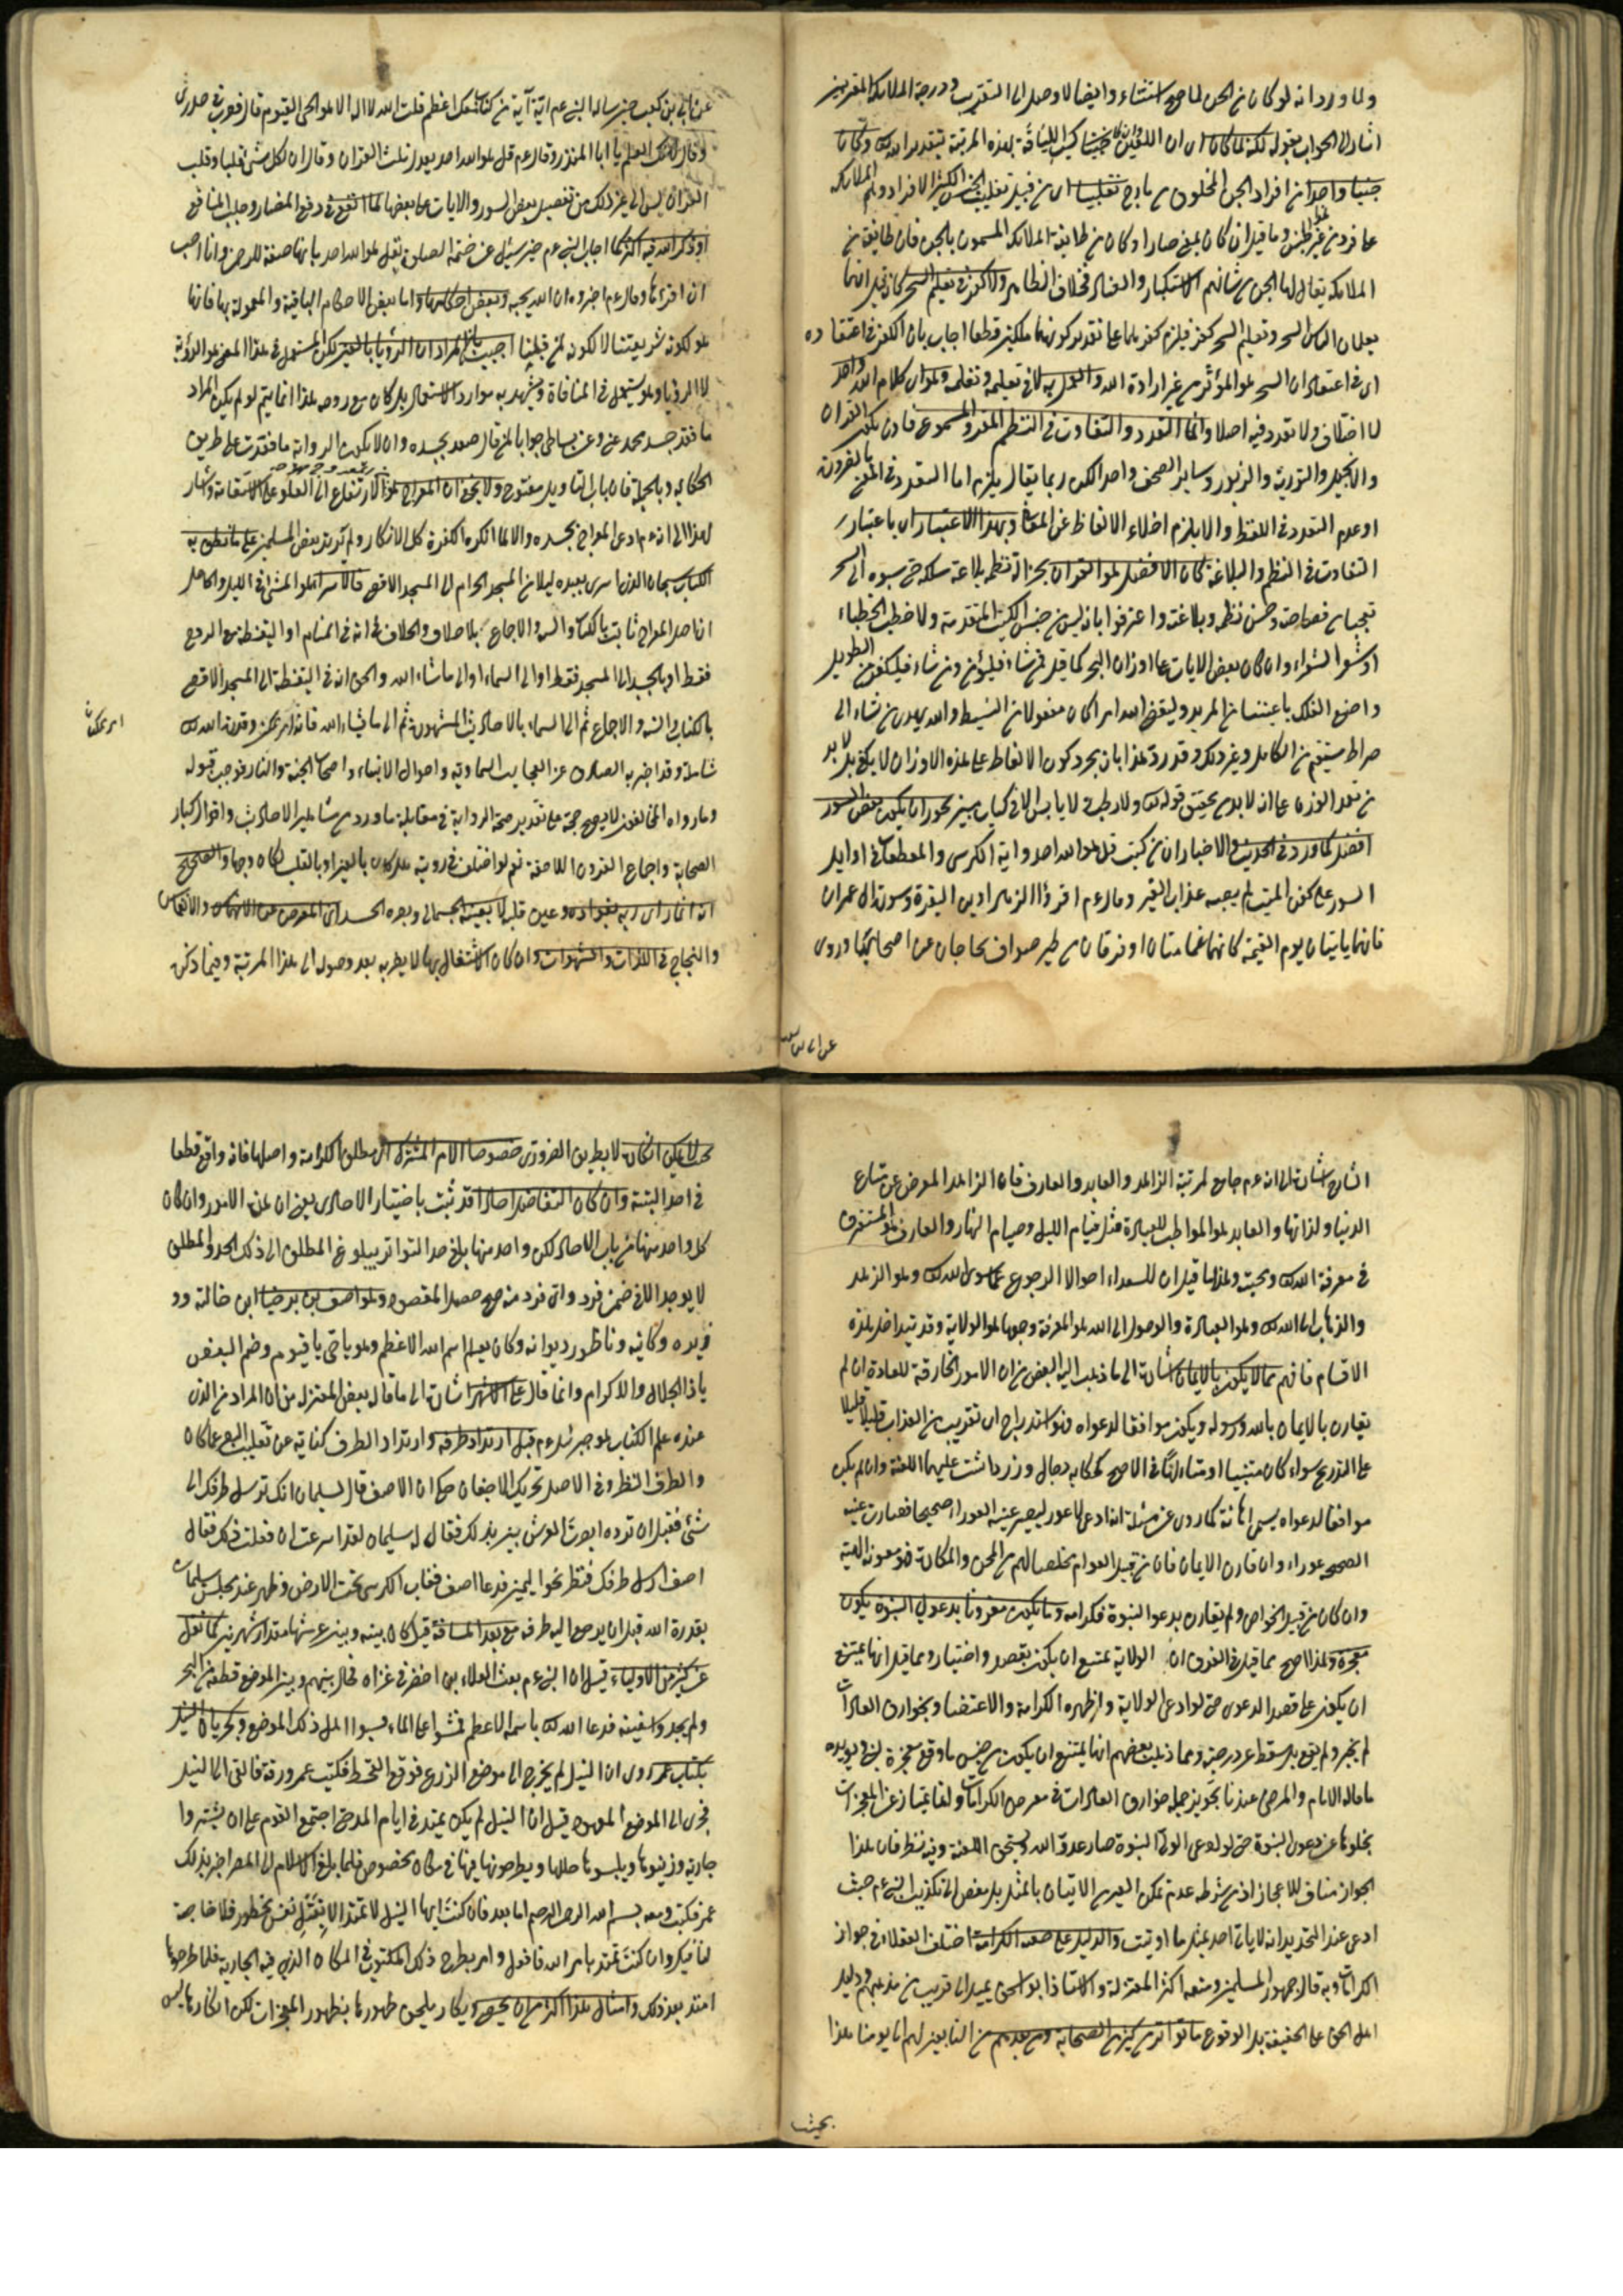 ولما ورد انه لو كان من الجن لما صح استثناء وايضا لا وصل الى التقريب ودرجة الملائكة المقربين
اشار الى الجواب بقوله لكنه لما كان اى ان اللعين بهذه المرتبة بتقدير الله وكان
جنيا واحدا من افراد الجن المخلوق من مارج تغليبا اى من قبيل تغليب الجنس الكثير الافراد وهم الملائكة
على فرد من غير الجنس وما قيل ان كان بمعنى صار او كان من طائفة الملائكة المسمون بالجن فان طائفة من
الملائكة يقال لها الجن من شانهم الاستكبار والفساد فخلاف الظاهر ولا كفر فى تعليم السحر كانه قيل انهما
يعلمان الناس السحر وتعليم السحر كفر فيلزم كفرهما على تقدير كونهما ملكين قطعا اجاب بان الكفر فى اعتقاده
اى فى اعتقاد ان السحر هو المؤثر من غير ارادة الله والعمل به لا فى تعليمه وتعلمه وهو اى كلام الله واحد
لا اختلاف ولا تعدد فيه اصلا وانما التعدد والتفاوت فى النظم المقرو المسموع فاذن يكون القران
والانجيل والتورية والزبور وساير الصحف واحدا لكن ربما يقال يلزم اما التعدد فى المعنى بالضرورة
او عدم التعدد فى اللفظ والا يلزم اخلاء الالفاظ عن المعانى وبهذا الاعتبار اى باعتبار
التفاوت فى النظم والبلاغة كان الافضل هو القران بجزالة نظمه بلاغة سلكه حتى نسبوه الى السحر
تعجبا من فصاحته وحسن نظمه وبلاغته واعترفوا بانه ليس من جنس الكتب المتقدمة ولا خطب الخطباء
او شعر الشعراء وان كان بعض الايات على اوزان البحر كما قيل فمن شاء فليؤمن ومن شاء فليكفر من الطويل
واصنع الفلك باعيننا من المديد وليقضى الله امرا كان مفعولا من البسيط والله يهدى من يشاء الى
صراط مستقيم من الكامل وغير ذلك وقد رد هذا بان مجرد كون الالفاظ على هذه الاوزان لا يكفى بل لا بد
من تعمد الوزن على انه لا بد من تحقيق قوله تع ولا رطب ولا يابس الا فى كتاب مبين نحو ان يكون بعض السور
افضل كما ورد فى الحديث والاخبار ان من كتب قل هو الله احد واية الكرسى والمعطعات فى اوايل
السور على كفن الميت لم يصبه عذاب القبر وقال عم اقرؤا الزهراوين البقرة وسورة ال عمران
فانهما ياتيان يوم القيمة كانهما غمامتان او فرقان من طير صواف تحاجان عن اصحابهما وروى
عن ابى بن كعب
عن ابى بن كعب حين ساله النبى عم اية آية من كتاب الله معك اعظم قلت الله لا اله الا هو الحى القيوم قال فضرب فى صدرى
وقال ليهنك العلم يا ابا المنذر وقال عم قل هو الله احد يعدل ثلث القران وقال ان لكل شئ قلبا وقلب
القران يس الى غير ذلك من تفصيل بعض السور والايات على بعضها لما انفع فى دفع المضار وجلب المنافع
او ذكر الله فيه اكثر كما اجاب النبى عم حين سئل عن ختمة الصلوة بقل هو الله احد بانها صفة للرحمن وانا احب
ان اقرءها وقال عم اخبروه ان الله يحبه وبعض احكامها واما بعض الاحكام الباقية والمعمولة بها فانها
هو لكونه شريعتنا لا لكونه لمن قبلنا اجيب بان المراد ان الرؤيا بالعين لكن المستعمل فى هذا المعنى هو الرؤية
لا الرؤيا وهو يستعمل فى المنافاة ويشهد به موارد الاستعمال بل كان مع روحه هذا انما يتم لو لم يكن المراد
ما فقد جسد محمد عن وعن بساطى جوابا لمن قال صعد بجسده وان لا يكون الرواية ما فقدت على طريق
الحكاية وبالجملة فان باب التاويل مفتوح ولا يخفى ان المعراج هو الارتفاع الى العلو على الاستقامة واشار
بهذا الى انه عم ادعى المعراج بجسده والا لما انكره الكفرة كل الانكار ولم يرتد بعض المسلمين على ما نطق به
الكتاب سبحان الذى اسرى بعبده ليلا من المسجد الحرام الى المسجد الاقصى فالاسراء هو المشى فى الليل والحاصل
ان اصل المعراج ثابت بالكتاب والسنة والاجماع بلا خلاف والخلاف فى انه فى المنام او اليقظة مع الروح
فقط او بالجسد الى المسجد فقط او الى السماء او الى ماشاء الله والحق انه فى اليقظة الى المسجد الاقصى
بالكتاب والسنة والاجماع ثم الى السماء بالاحاديث المشهورة ثم الى ما شاء الله فانه امر ممكن وقدرة الله تع
امر ممكن
شاملة وقد اخبر به الصادق عن العجايب السماوية واحوال الانبياء واصحاب الجنة والنار فوجب قبوله
وما رواه المخالفون لا يصح حجة مع تقدير صحة الرواية فى مقابلة ما ورد من مشاهير الاحاديث واقوال كبار
الصحابة واجماع القرون اللاحقة نعم لو اختلف فى رؤيته هل كان بالعين او بالقلب لكان وجها والصحيح
انه انما راى ربه بفؤاده وعين قلبه لا بعينه الجسمانى وبصره الحسى المعرض عن الانهماك والانغماس
والنجاح فى اللذات والشهوات وان كان الاشتغال بها لا يضر به بعد وصوله الى هذا المرتبة وفيما ذكر
الشارح اشارة الى انه عم جامع لمرتبة الزاهد والعابد والعارف فان الزاهد المعرض عن متاع
الدنيا ولذاتها والعابد هو المواظب للعبادة مثل قيام الليل وصيام النهار والعارف هو المستغرق
فى معرفة الله تع ومحبته ولهذا ما قيل ان للسعداء احوالا الرجوع عما سوى الله تع وهو الزهد
والذهاب الى الله تع وهو العبادة والوصول الى الله هو المعرفة وجمعها هو الولاية وقد تتداخل هذه
الاقسام فافهم مما لا يكون بالايمان اشارة الى ما ذهب اليه البعض من ان الامور الخارقة للعادة ان لم
يقارن بالايمان بالله ورسوله ويكون موافقا لدعواه فهو استدراج اى تقريب من العذاب قليلا قليلا
على التدريج سواء كان متنبيا او متالها فى الاصح كمكايد دجال وزردشت عليهما اللعنة وان لم يكن
موافقا لدعواه يسمى اهانة كما روى عن مسيلمة انه ادعى لاعور ليصير عينه العوراء صحيحا فصارت عينه
الصحيحة عوراء وان قارن الايمان فان من قبيل العوام تخلصا لهم من المحن والمكاره فهو معونة الهية
وان كان من قبيل الخواص ولم يقارن بدعوا النبوة فكرامة وما يكون مقرونا بدعوى النبوة يكون
معجزة ولهذا الاصح مما قيل فى الفرق ان الولاية يمتنع ان يكون بقصد واختيار ومما قيل انها يمتنع
ان يكون على قصد الدعوى حتى لو ادعى الولاية واظهره الكرامة والاعتضاد بخوارق العادات
لم يجز ولم يقع بل سقط عن درجته ومما ذهب بعضهم انها يمتنع ان يكون من جنس ما وقع معجزة لنبى ويؤيده
ما قاله الامام والمرضى عندنا تجويز جملة خوارق العادات فى معرض الكرامات وانما يمتاز عن المعجزات
بخلوها عن دعوى النبوة حتى لو ادعى الولى النبوة صار عدو الله ويستحق اللعنة وفيه نظر فان هذا
الجواز مناف للاعجاز اذ من شرطه عدم تمكن الغير من الاتيان بالمثل بل مفض الى تكذيب النبى عم حيث
ادعى عند التحدى انه لا ياتى احد بمثل ما اوتيت والدليل على صحة الكرامة اختلف العقلاء فى جواز
الكرامات وبه قال جمهور المسلمين ومنعه اكثر المعتزلة والاستاذ ابو اسحق يميل الى قريب من مذهبهم ودليل
اهل الحق على الحقيقة بل الوقوع ما تواتر من كثير من الصحابة ومن بعدهم من التابعين لهم الى يومنا هذا
بحيث
بحيث لا يمكن انكاره لا بطريق الضرورى خصوصا الامر المشترك اى مطلق الكرامة واصلها فانه واقع قطعا
فى احد البتة وان كان التفاصيل احادا قد ثبت باختيار الاحادى يعنى ان هذه الامور وان كان
كل واحد منها من باب الاحاد لكن واحد منها بلغ حد التواتر يبلوغ المطلق الى ذلك الحد والمطلق
لا يوجد الا فى ضمن فرد واى فرد منه صح حصل المقصود وهو اصف بن برخيا ابن خالته وو
زيره وكاتبه وناظور ديوانه وكان يعلم اسم الله الاعظم وهو يا حى يا قيوم وضم البعض
يا ذا الجلال والاكرام وانما قال على الاشهر اشارة الى ما قال بعض المعتزلة من ان المراد من الذى
عنده علم الكتاب هو جبرئيل عم قبل ارتداد طرفه وارتداد الطرف كناية عن تقليب البصر عما كان
والطرف النظر وفى الاصل تحريك الاجفان حكى ان الاصف قال لسليمان انك ترسل طرفك الى
شئ فقبل ان ترده ابصرت العرش بين يديك فقال له سليمان لقد اسرعت ان فعلت ذلك فقال
اصف ارسل طرفك فنظر نحو اليمين فدعا اصف فغاب الكرسى تحت الارض وظهر عند مجلس سليمان
بقدرة الله قبل ان يرجع اليه طرفه مع بعد المسافة قيل كان بينه وبين عرشها مقدار شهرين كما نقل
عن كثير من الاولياء قيل ان النبى عم بعث العلاء بن اخضر فى غزاه فحال بينهم وبين الموضع قطعة من البحر
ولم يجد وسفينة فدعا الله تع باسمه الاعظم فمشوا على الماء فسبوا اهل ذلك الموضع وكجريان النيل
بكتاب عمر روى ان النيل لم يخرج الى موضع الزرع فوقع القحط فكتب عمر ورقة فالقى الى النيل
فجرى الى الموضع المعهود قيل ان النيل لم يكن يمتد فى ايام المد حتى اجتمع القوم على ان يشتروا
جارية وزينوها ويلبسوها حللها ويطرحونها فيها فى مكان مخصوص فلما بلغ الاسلام الى المصر اخبر بذلك
عمر فكتب ومعه بسم الله الرحمن الرحيم اما بعد فان كنت ايها النيل لا تمتد الا بقتل نفس محظور فلا حاجة
لنا فيك وان كنت تمتد بامر الله فافعل وامر بطرح ذلك المكتوب فى المكان الذى فيه الجارية فلما طرحوها
امتد بعد ذلك وامثال هذا اكثر من ان يحصى ويكاد يلحق ظهورها بظهور المعجزات لكن انكارها ليس